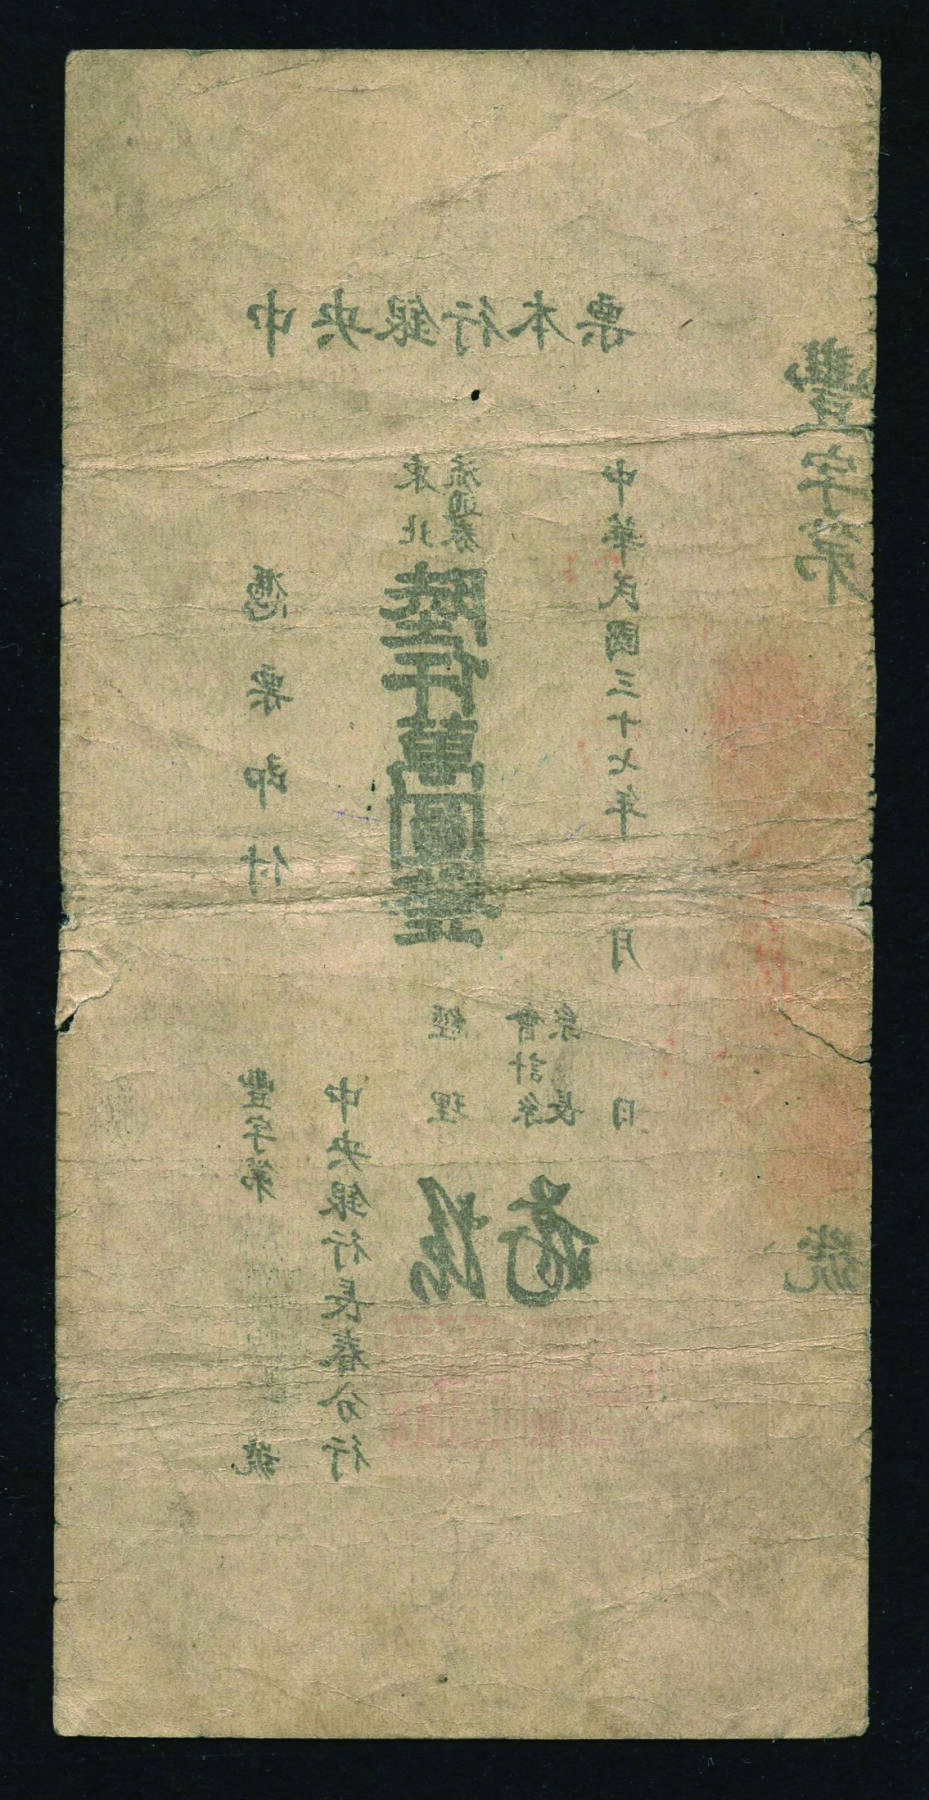 中央銀行本票
憑票即付
豐字第 號
中央銀行長春分行
東北
流通券
陸仟萬圓整
經理
會計系
系長
中華民國三十七年 月 日
豐字第 號